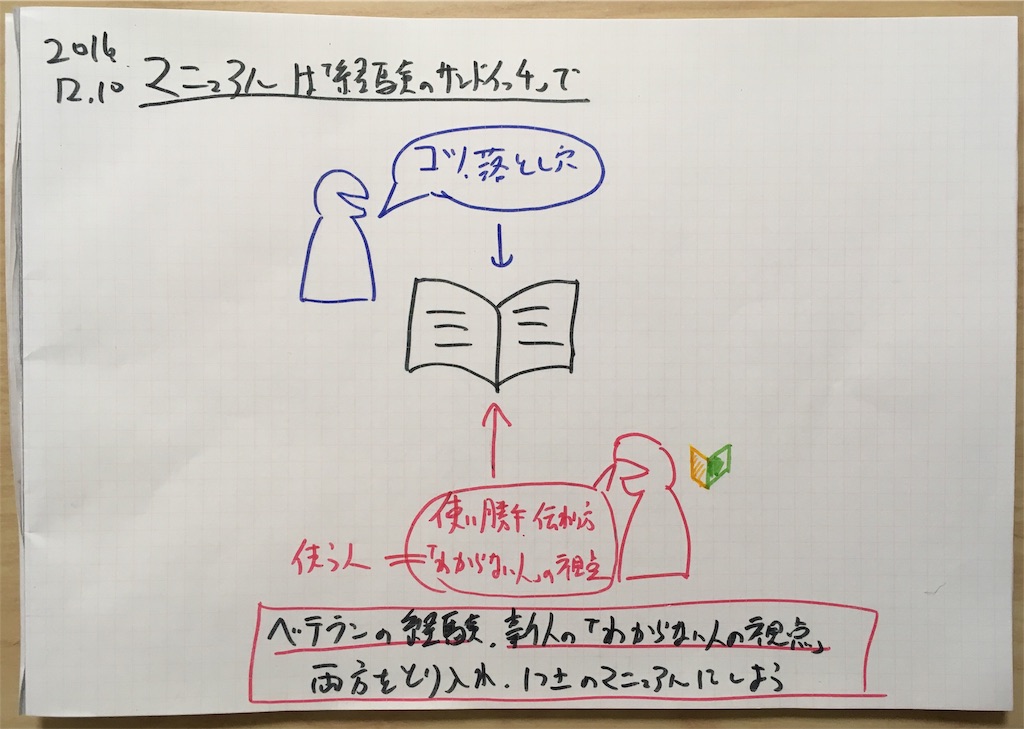 2016.
12.10
マニュアルは「経験のサンドイッチ」で
コツ、落とし穴
使い勝手 伝わり方
使う人 = 「わからない人」の視点
ベテランの経験、新人の「わからない人の視点」
両方をとり入れ、1つ上のマニュアルにしよう